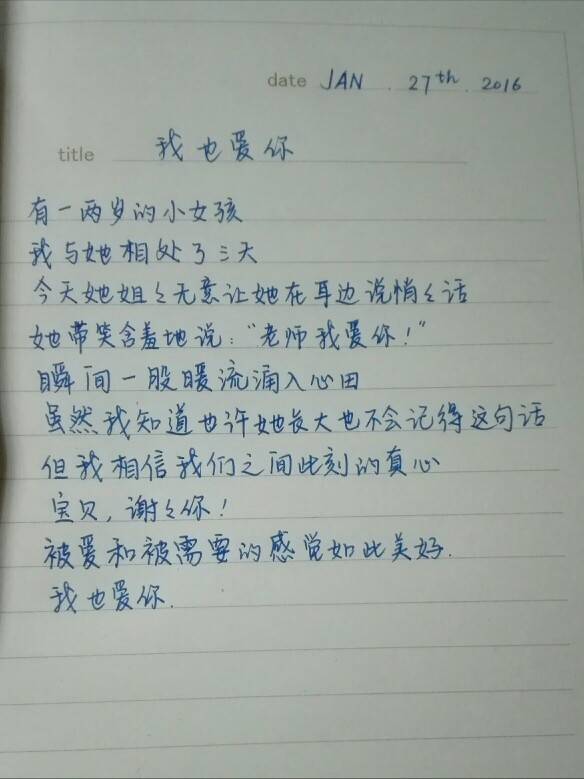 date JAN 27th 2016
title 我也爱你
有一两岁的小女孩
我与她相处了三天
今天她姐々无意让她在耳边说悄々话
她带笑含羞地说：“老师我爱你！”
瞬间一股暖流涌入心田
虽然我知道也许她长大也不会记得这句话
但我相信我们之间此刻的真心
宝贝，谢々你！
被爱和被需要的感觉如此美好.
我也爱你.